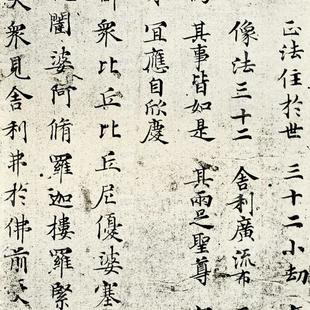 正法住於世 三十二小劫
像法三十二 舍利廣流布
其事皆如是 其兩足聖尊
宜應自欣慶
衆比丘比丘尼優婆塞
闥婆阿脩羅迦樓羅緊
衆見舍利弗於佛前